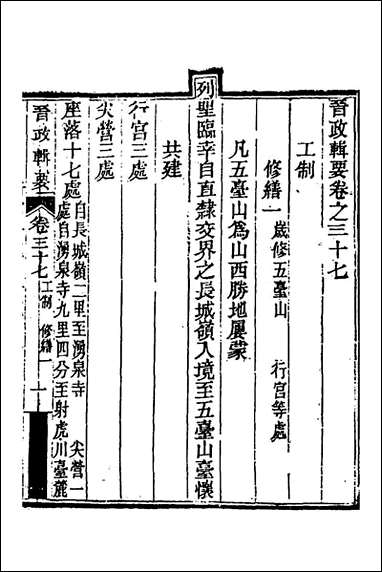 晉政輯要卷之三十七
工制
修繕一 歲修五臺山 行宮等處
凡五臺山為山西勝地屢蒙
列聖臨幸自直隸交界之長城嶺入境至五臺山臺懷
共建
行宮三處
尖營三處
座落十七處 自長城嶺二里至湧泉寺 尖營一
處自湧泉寺九里四分至射虎川臺麓
晉政輯要 卷三十七 工制 修繕一 一